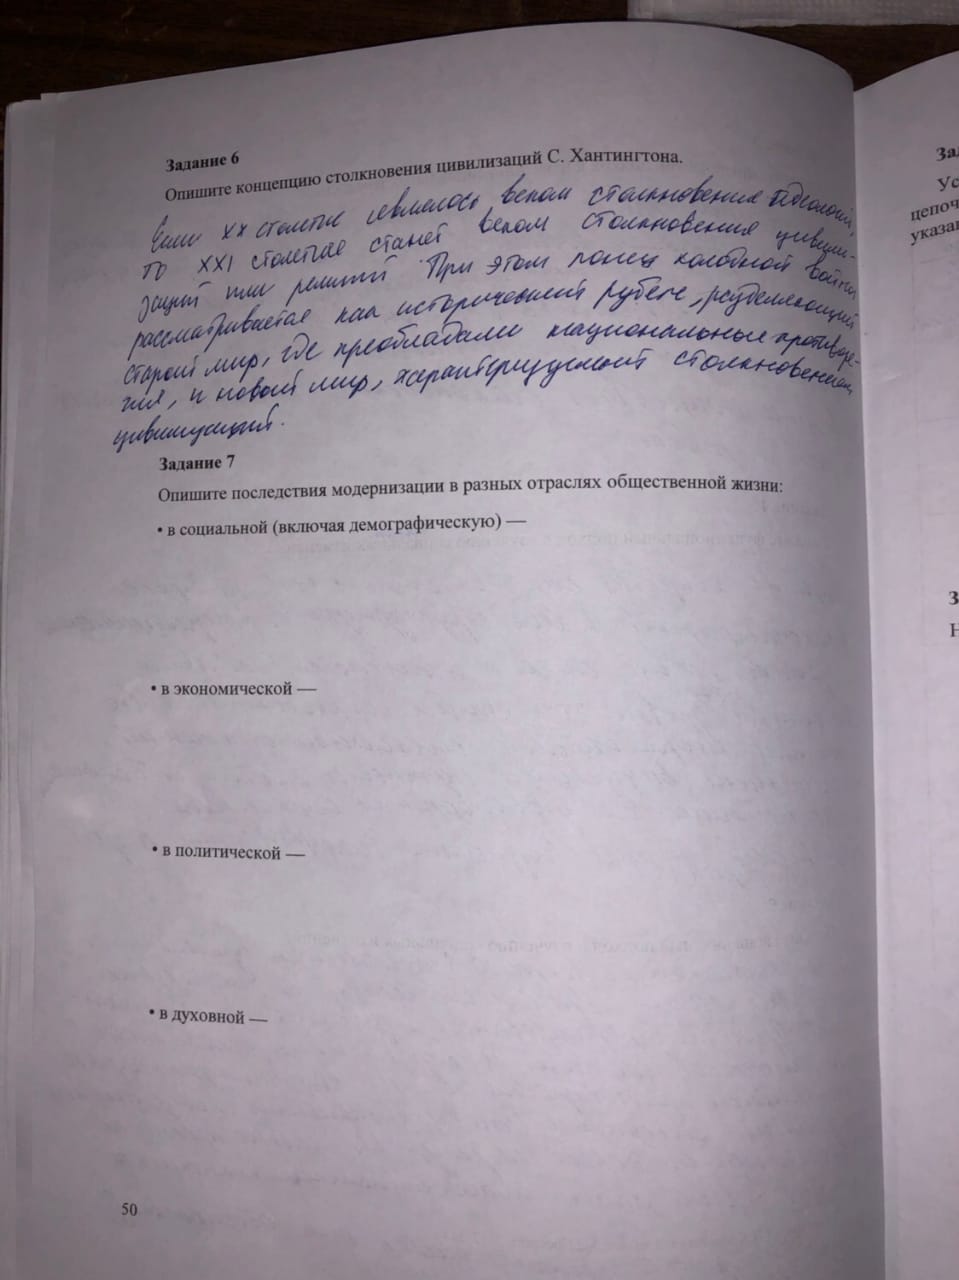 Задание 6
Опишите концепцию столкновения цивилизаций С. Хантингтона.
Если XX столетие являлось веком столкновения идеологий,
то XXI столетие станет веком столкновения цивили-
заций или религий. При этом конец холодной войны
рассматривается как исторический рубеж, разделяющий
старый мир, где преобладали национальные противоре-
чия, и новый мир, характеризуемый столкновением
цивилизаций.
Задание 7
Опишите последствия модернизации в разных отраслях общественной жизни:
• в социальной (включая демографическую) —
• в экономической —
• в политической —
• в духовной —
50
За
Ус
цепоч
указа
З
Н